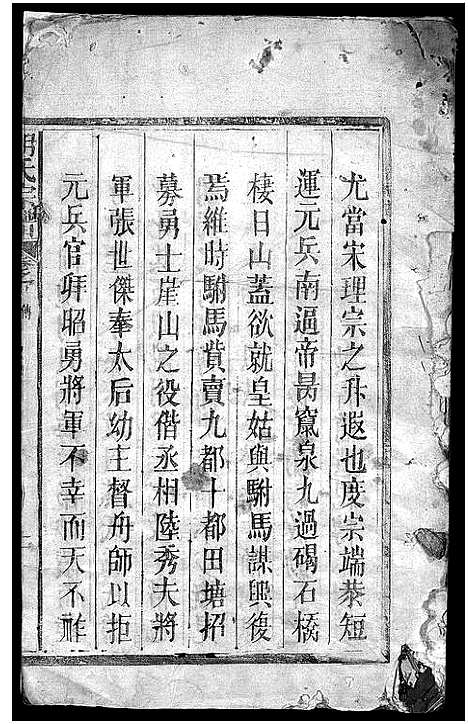 尤當宋理宗之升遐也度宗端恭短
運元兵南逼帝昺竄泉九過碣石橋
棲日山蓋欲就皇姑與駙馬謀興復
焉維時駙馬貲賣九都十都田塘招
募勇士崖山之役偕丞相陸秀夫將
軍張世傑奉太后幼主督舟師以拒
元兵官拜昭勇將軍不幸而天不祚
胡氏宗譜